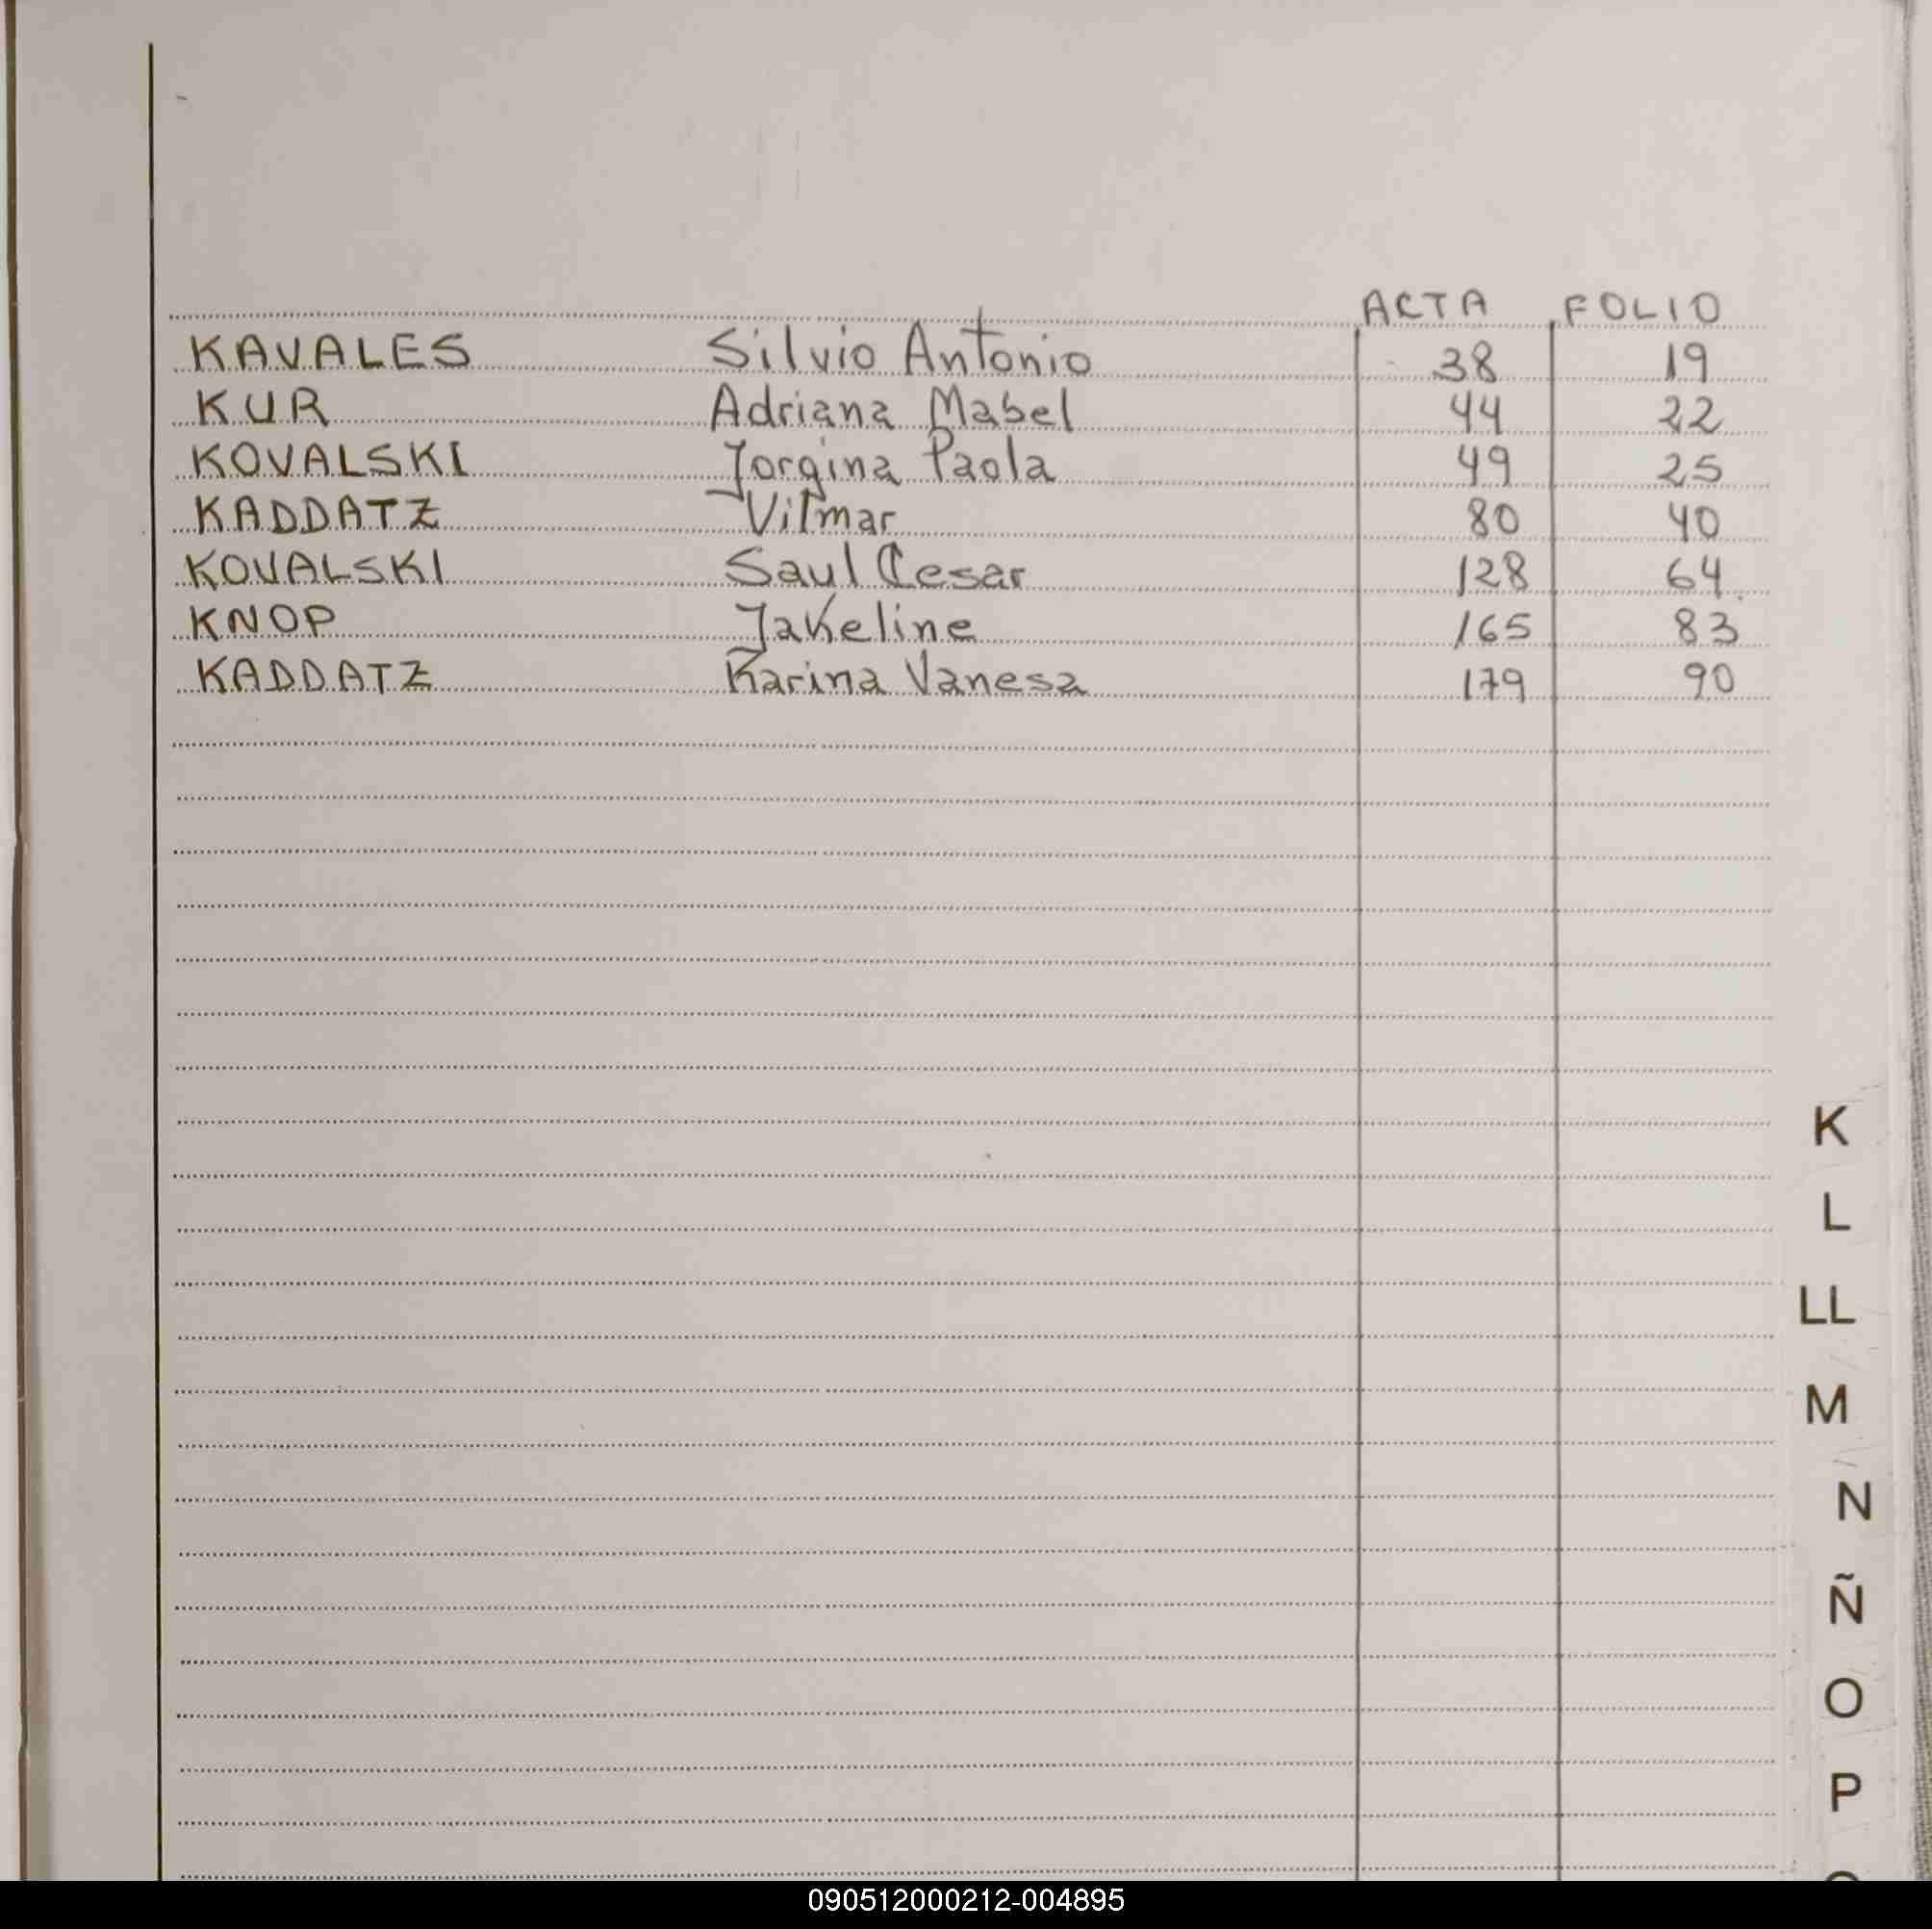 ACTA FOLIO
KAVALES Silvio Antonio 38 19
KUR Adriana Mabel 44 22
KOVALSKI Jorgina Paola 49 25
KADDATZ Vilmar 80 40
KOVALSKI Saul Cesar 128 64
KNOP Jakeline 165 83
KADDATZ Karina Vanesa 179 90
K
L
LL
M
N
Ñ
O
P
090512000212-004895